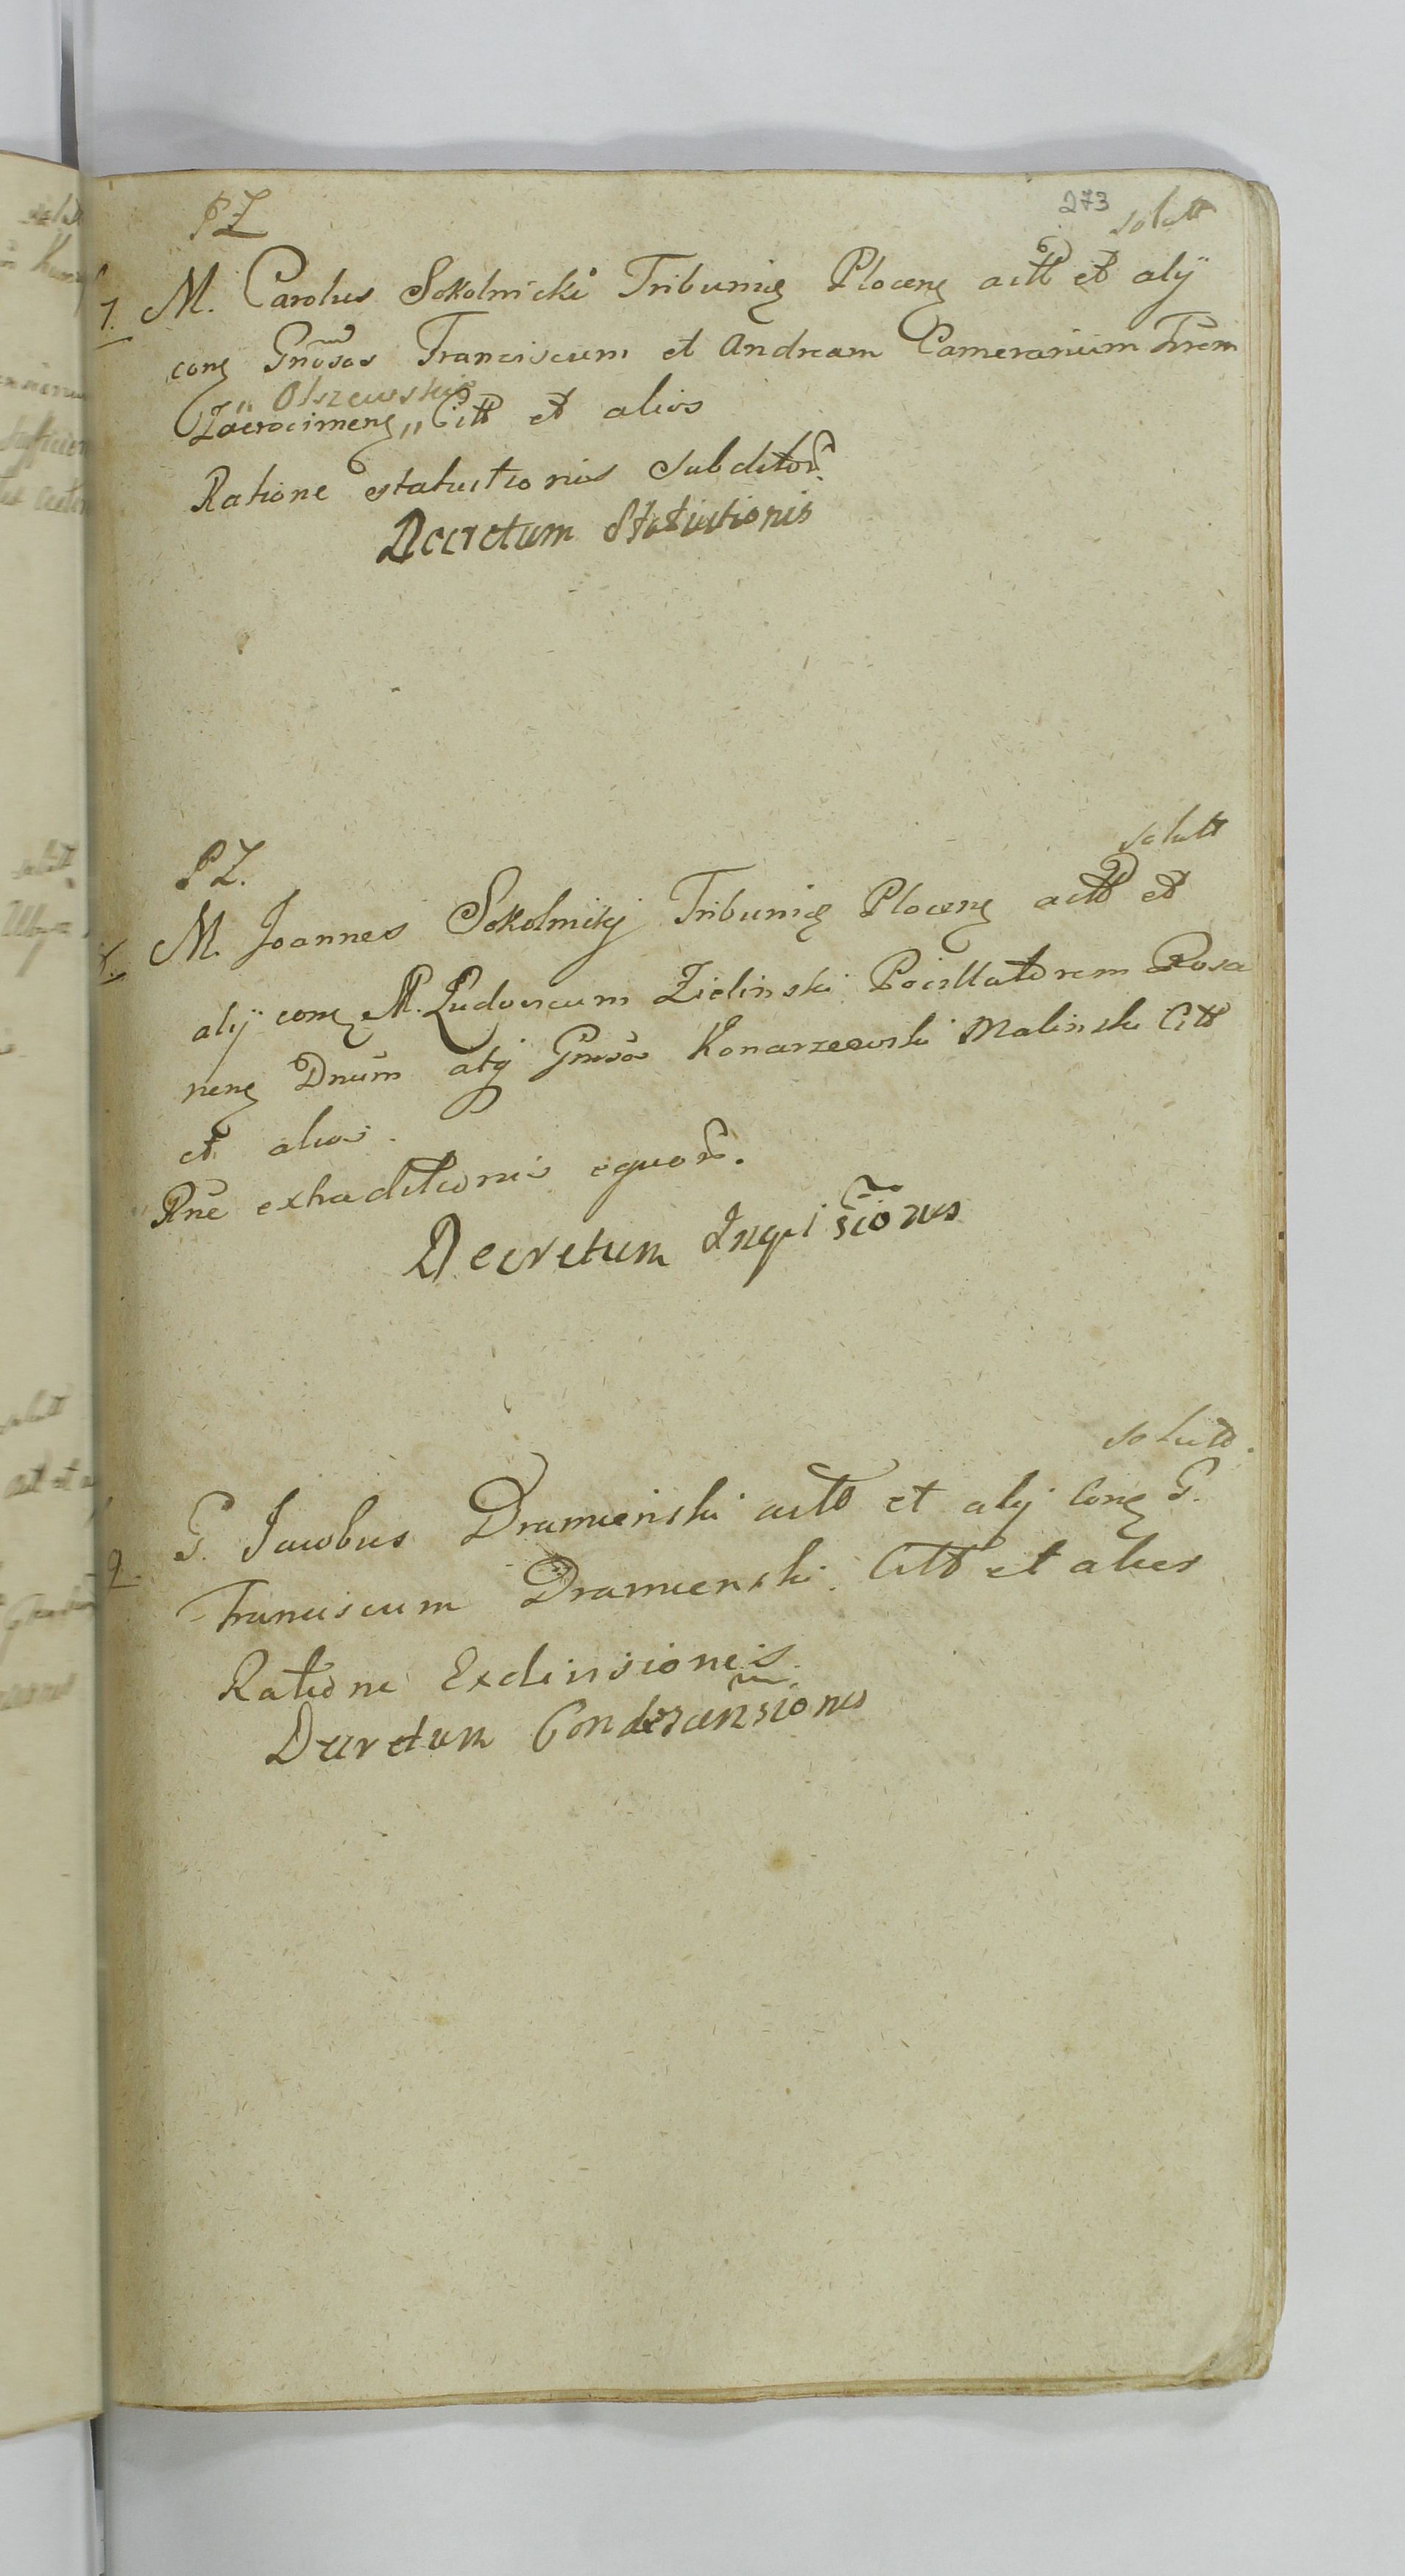 PZ
273
solutt
7. M. Carolus Sokolnicki Tribunię Plocenę actt et alij
conę Gnosos Franciscum et Andream Camerarium Trrem
„ Olszewskie
Zacrocimenę „ Citt et alios
Ratione statuitionis subditor.
Decretum Statuitionis
PZ.
solutt
M. Joannes Sokolnicki Tribunię Plocenę actt et
alij conę M. Ludovicum Zielinski Pocillatorem Rosa
nenę Dnum alij Gnosos Konarzewski Malinski Citt
et alios.
Rne extraditionis equor.
Decretum Inquisitionis
solutt.
9. G. Jacobus Dramienski actt et alij conę G.
Franciscum Dramienski. Citt et alios
Ratione Exdivisionis.
Decretum Condescensionis